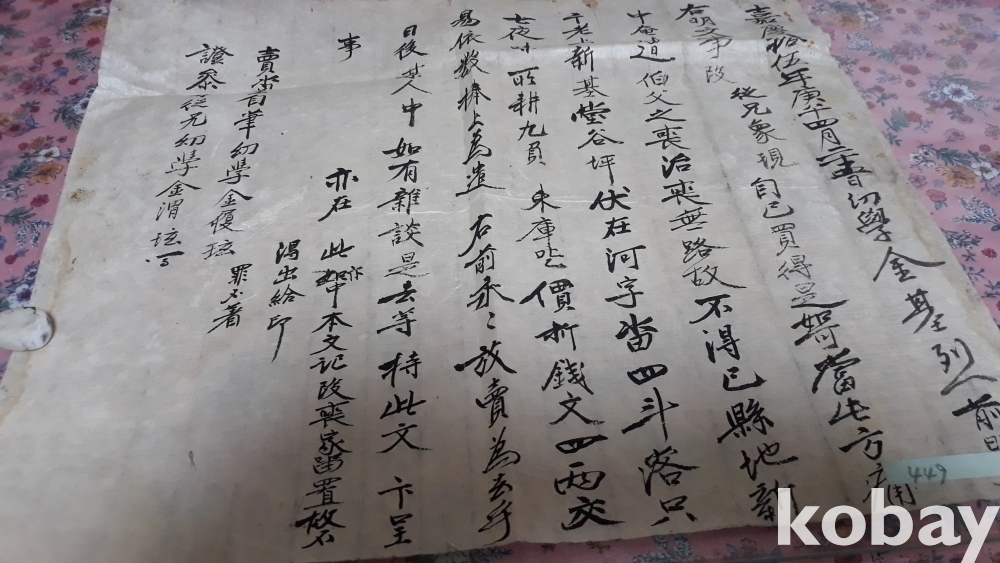 嘉慶拾伍年庚午四月二十日幼學金基列前明
右明文事段從兄象現自己買得是如可當此方用
中奄逍伯父之喪治喪無路故不得已縣地新
下老小新基堂谷坪伏在河字畓四斗落只
七夜味所耕九負束庫乙價折錢文四兩交
易依數捧上為遣右前丞丞放賣為去乎
日後某人中如有雜談是去等持此文卞呈
事
亦在此本文記段喪家留置故不
得出給印
賣畓自筆幼學金復玹
罪不着
證參從兄幼學金渭玹
449
kobay